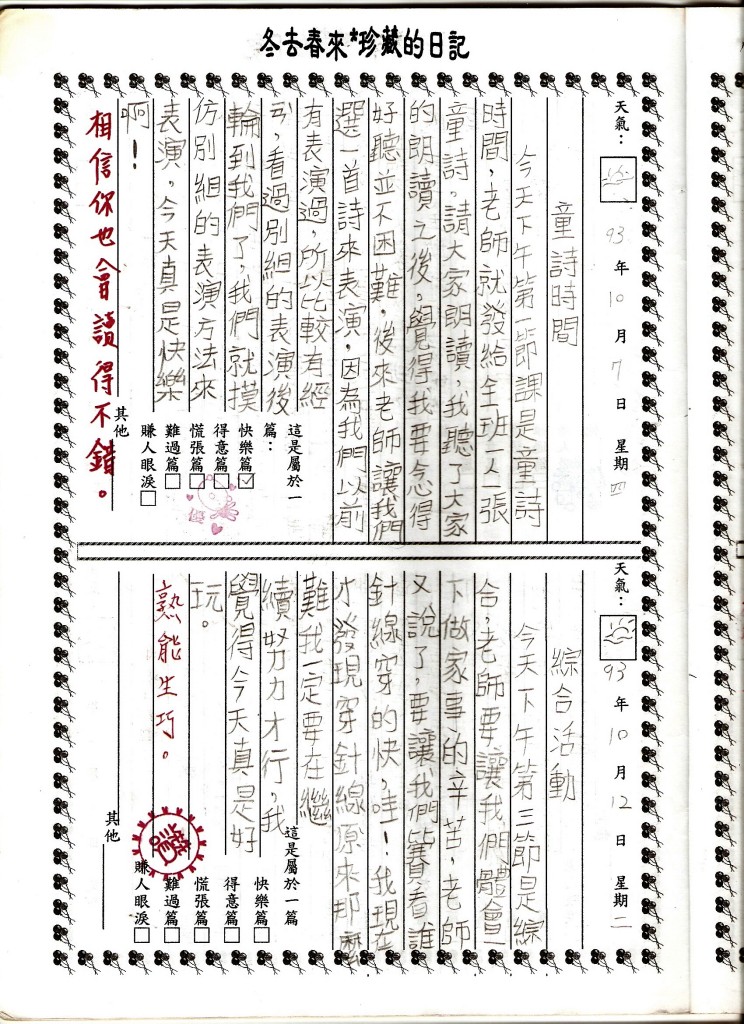 冬去春來*珍藏的日記
天氣：
93年10月7日 星期四
童詩時間
今天下午第一節課是童詩
時間，老師就發給全班一人一張
童詩，請大家朗讀，我聽了大家
的朗讀之後，覺得我要念得
好聽並不困難，後來老師讓我們
選一首詩來表演，因為我們以前
有表演過，所以比較有經
ㄢˋ，看過別組的表演後
輪到我們了，我們就摸
仿別組的表演方法來
表演，今天真是快樂
啊！
相信你也會讀得不錯。
這是屬於一
篇：
快樂篇☑
得意篇□
慌張篇□
難過篇□
賺人眼淚□
其他
天氣：
93年10月12日 星期二
綜合活動
今天下午第三節是綜
合，老師要讓我們體會一
下做家事的辛苦，老師
又說了，要讓我們比賽看誰
針線穿的快，哇！我現在
才發現穿針線原來那麼
難我一定要在繼
續努力才行，我
覺得今天真是好
玩。
熟能生巧。
這是屬於一篇
快樂篇□
得意篇□
慌張篇□
難過篇□
賺人眼淚□
其他